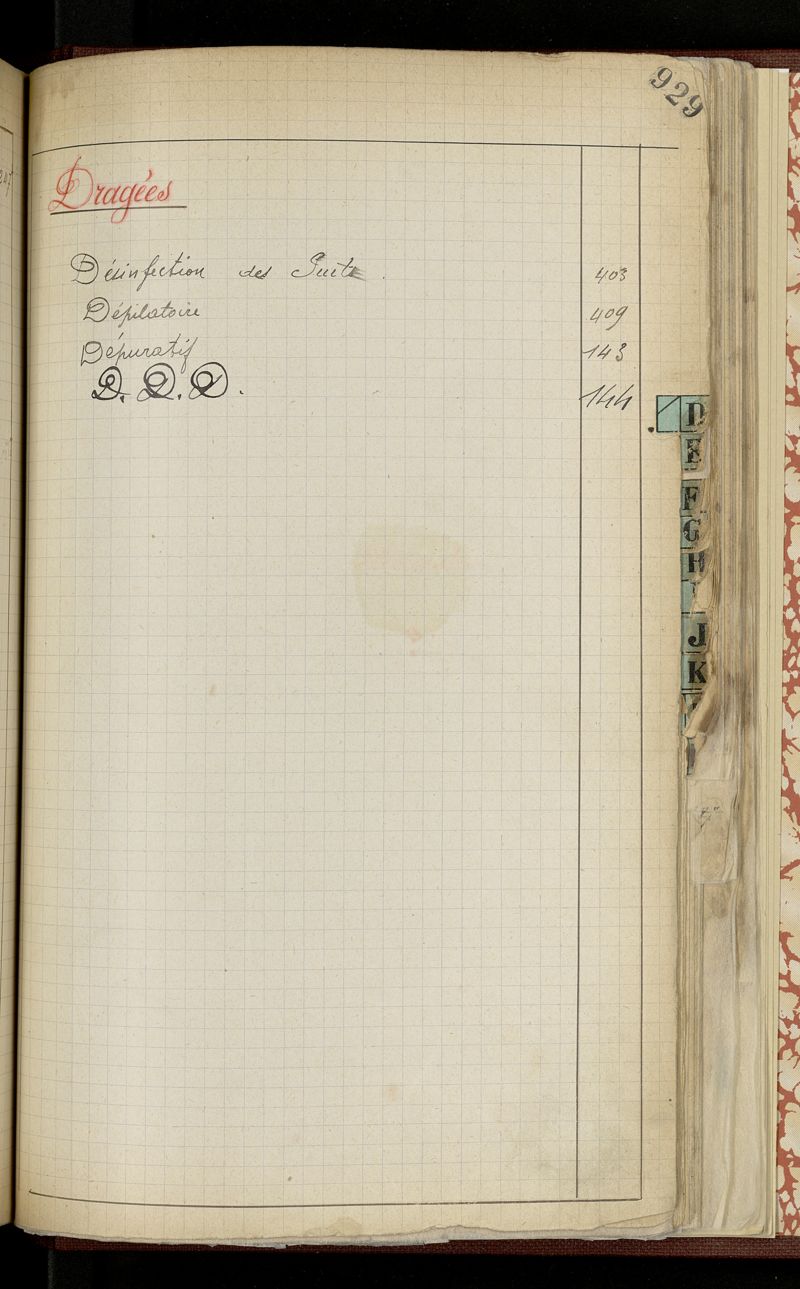 929
Dragées
Désinfection des Puits . 403
Dépilatoire 409
Dépuratif 143
D. D. D. 144
D
E
F
G
H
I
J
K